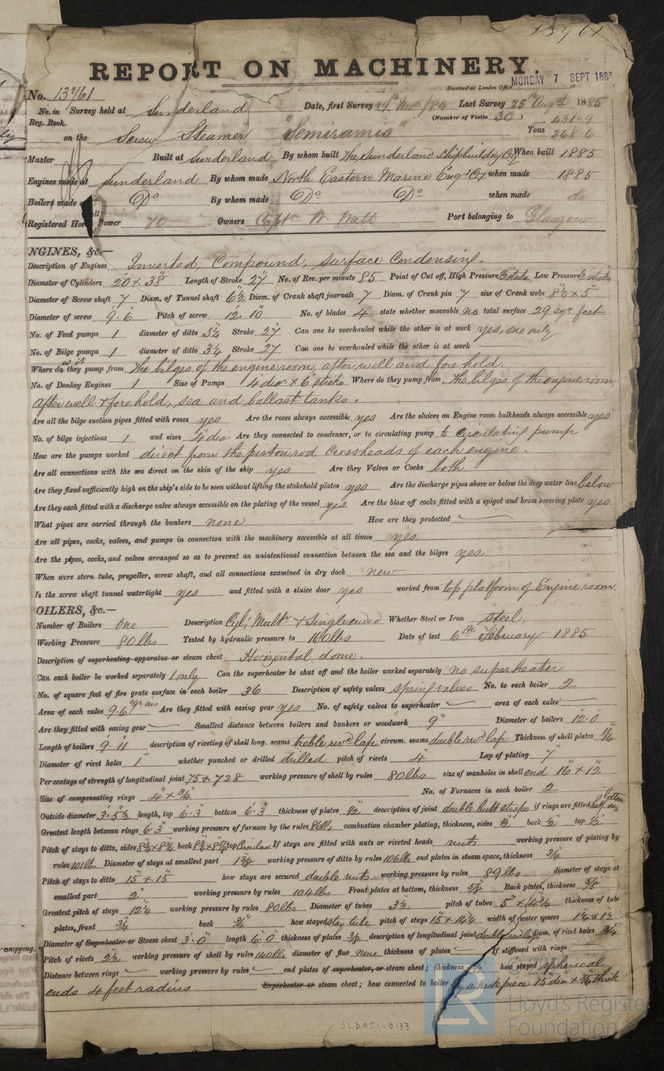 13761
REPORT ON MACHINERY.
Received at London Office MONDAY 7 SEPT 188
No. 13761
No. in Survey held at Sunderland Date, first Survey Last Survey 25 1885
Reg. Book. (Number of Visits 30)
on the Screw Steamer "Semiramis" Tons
Master Built at Sunderland By whom built The Sunderland Shipbuilding Co When built 1885
Engines made at Sunderland By whom made North Eastern Marine Eng Co when made 1885
Boilers made Do By whom made Do Do when made do
Registered Horse Power 70 Owners Capt W. Watt Port belonging to Glasgow
NGINES, &c.—
Description of Engines Inverted, Compound, Surface Condensing.
Diameter of Cylinders 20 & 38" Length of Stroke 27 No. of Rev. per minute 85 Point of Cut off, High Pressure Low Pressure
Diameter of Screw shaft 7 Diam. of Tunnel shaft 6½ Diam. of Crank shaft journals 7 Diam. of Crank pin 7 size of Crank webs 8½ x 5
Diameter of screw 9.6 Pitch of screw 12.10 No. of blades 4 state whether moveable no total surface 29 feet
No. of Feed pumps 1 diameter of ditto 3¼ Stroke 27 Can one be overhauled while the other is at work yes, one only
No. of Bilge pumps 1 diameter of ditto 3¼ Stroke 27 Can one be overhauled while the other is at work
Where do they pump from The bilges of the engine room, after well and fore hold.
No. of Donkey Engines 1 Size of Pumps 4 dia x 6 stroke Where do they pump from, The bilges of the engine room,
after well & fore hold, sea and ballast tanks.
Are all the bilge suction pipes fitted with roses yes Are the roses always accessible yes Are the sluices on Engine room bulkheads always accessible yes
No. of bilge injections 1 and sizes dia Are they connected to condenser, or to circulating pump to circulating pump
How are the pumps worked direct from the piston rod Crossheads of each engine.
Are all connections with the sea direct on the skin of the ship yes Are they Valves or Cocks both
Are they fixed sufficiently high on the ship's side to be seen without lifting the stokehold plates yes Are the discharge pipes above or below the deep water line below
Are they each fitted with a discharge valve always accessible on the plating of the vessel yes Are the blow off cocks fitted with a spigot and brass covering plate yes
What pipes are carried through the bunkers none How are they protected
Are all pipes, cocks, valves, and pumps in connection with the machinery accessible at all times yes
Are the pipes, cocks, and valves arranged so as to prevent an unintentional connection between the sea and the bilges yes
When were stern tube, propeller, screw shaft, and all connections examined in dry dock new
Is the screw shaft tunnel watertight yes and fitted with a sluice door yes worked from top platform of Engine room
OILERS, &c.—
Number of Boilers One Description Cyl; Mult & Single ended Whether Steel or Iron steel,
Working Pressure 80 lbs Tested by hydraulic pressure to 160 lbs Date of test 6th February 1885
Description of superheating apparatus or steam chest Horizontal dome.
Can each boiler be worked separately 1 only Can the superheater be shut off and the boiler worked separately no superheater
No. of square feet of fire grate surface in each boiler 36 Description of safety valves spring valves No. to each boiler 2
Area of each valve 9.6 Are they fitted with easing gear yes No. of safety valves to superheater area of each valve
Are they fitted with easing gear Smallest distance between boilers and bunkers or woodwork 9" Diameter of boilers 12.0
Length of boilers 9.11 description of riveting of shell long. seams treble riv lap circum. seams double riv lap Thickness of shell plates
Diameter of rivet holes 1" whether punched or drilled drilled pitch of rivets 4" Lap of plating 7"
Percentage of strength of longitudinal joint 75 & 72.8 working pressure of shell by rules 80 lbs size of manholes in shell end 16 x 12
Size of compensating rings 4" x ¾" No. of Furnaces in each boiler 2
Outside diameter 3.5½ length, top 6.3 bottom 6.3 thickness of plates ½ description of joint double butt straps if rings are fitted
Greatest length between rings 6.3 working pressure of furnace by the rules 86 lbs combustion chamber plating, thickness, sides ½ back ½ top ½
Pitch of stays to ditto, sides back top If stays are fitted with nuts or riveted heads nuts working pressure of plating by
rules 101 lbs Diameter of stays at smallest part working pressure of ditto by rules 106 lbs end plates in steam space, thickness ¾
Pitch of stays to ditto 15" x 15" how stays are secured double nuts working pressure by rules 89 lbs diameter of stays at
smallest part 2" working pressure by rules 104 lbs Front plates at bottom, thickness Back plates, thickness
Greatest pitch of stays 12¼ working pressure by rules 80 lbs Diameter of tubes 3½ pitch of tubes thickness of tube
plates, front ¾ back ¾ how stayed stay tube pitch of stays 15 x width of water spaces
Diameter of Superheater or Steam chest 3.0 length 6.0 thickness of plates description of longitudinal joint double riv lap diam. of rivet holes
Pitch of rivets 2½ working pressure of shell by rules diameter of flue none thickness of plates If stiffened with rings
Distance between rings working pressure by rules end plates of superheater, or steam chest; thickness how stayed spherical
ends 4 feet radius Superheater or steam chest; how connected to boiler by a neck piece 15 dia & thick
SLD951-0133
LR
Lloyd's Register
Foundation